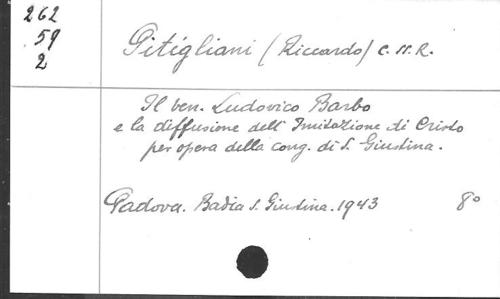 262
59
2
Pitigliani (Riccardo) C.N.R.
Il ben. Ludovico Barbo
e la diffusione dell'Imitazione di Cristo
per opera della cong. di S. Giustina.
Padova. Badia S. Giustina. 1943 8°